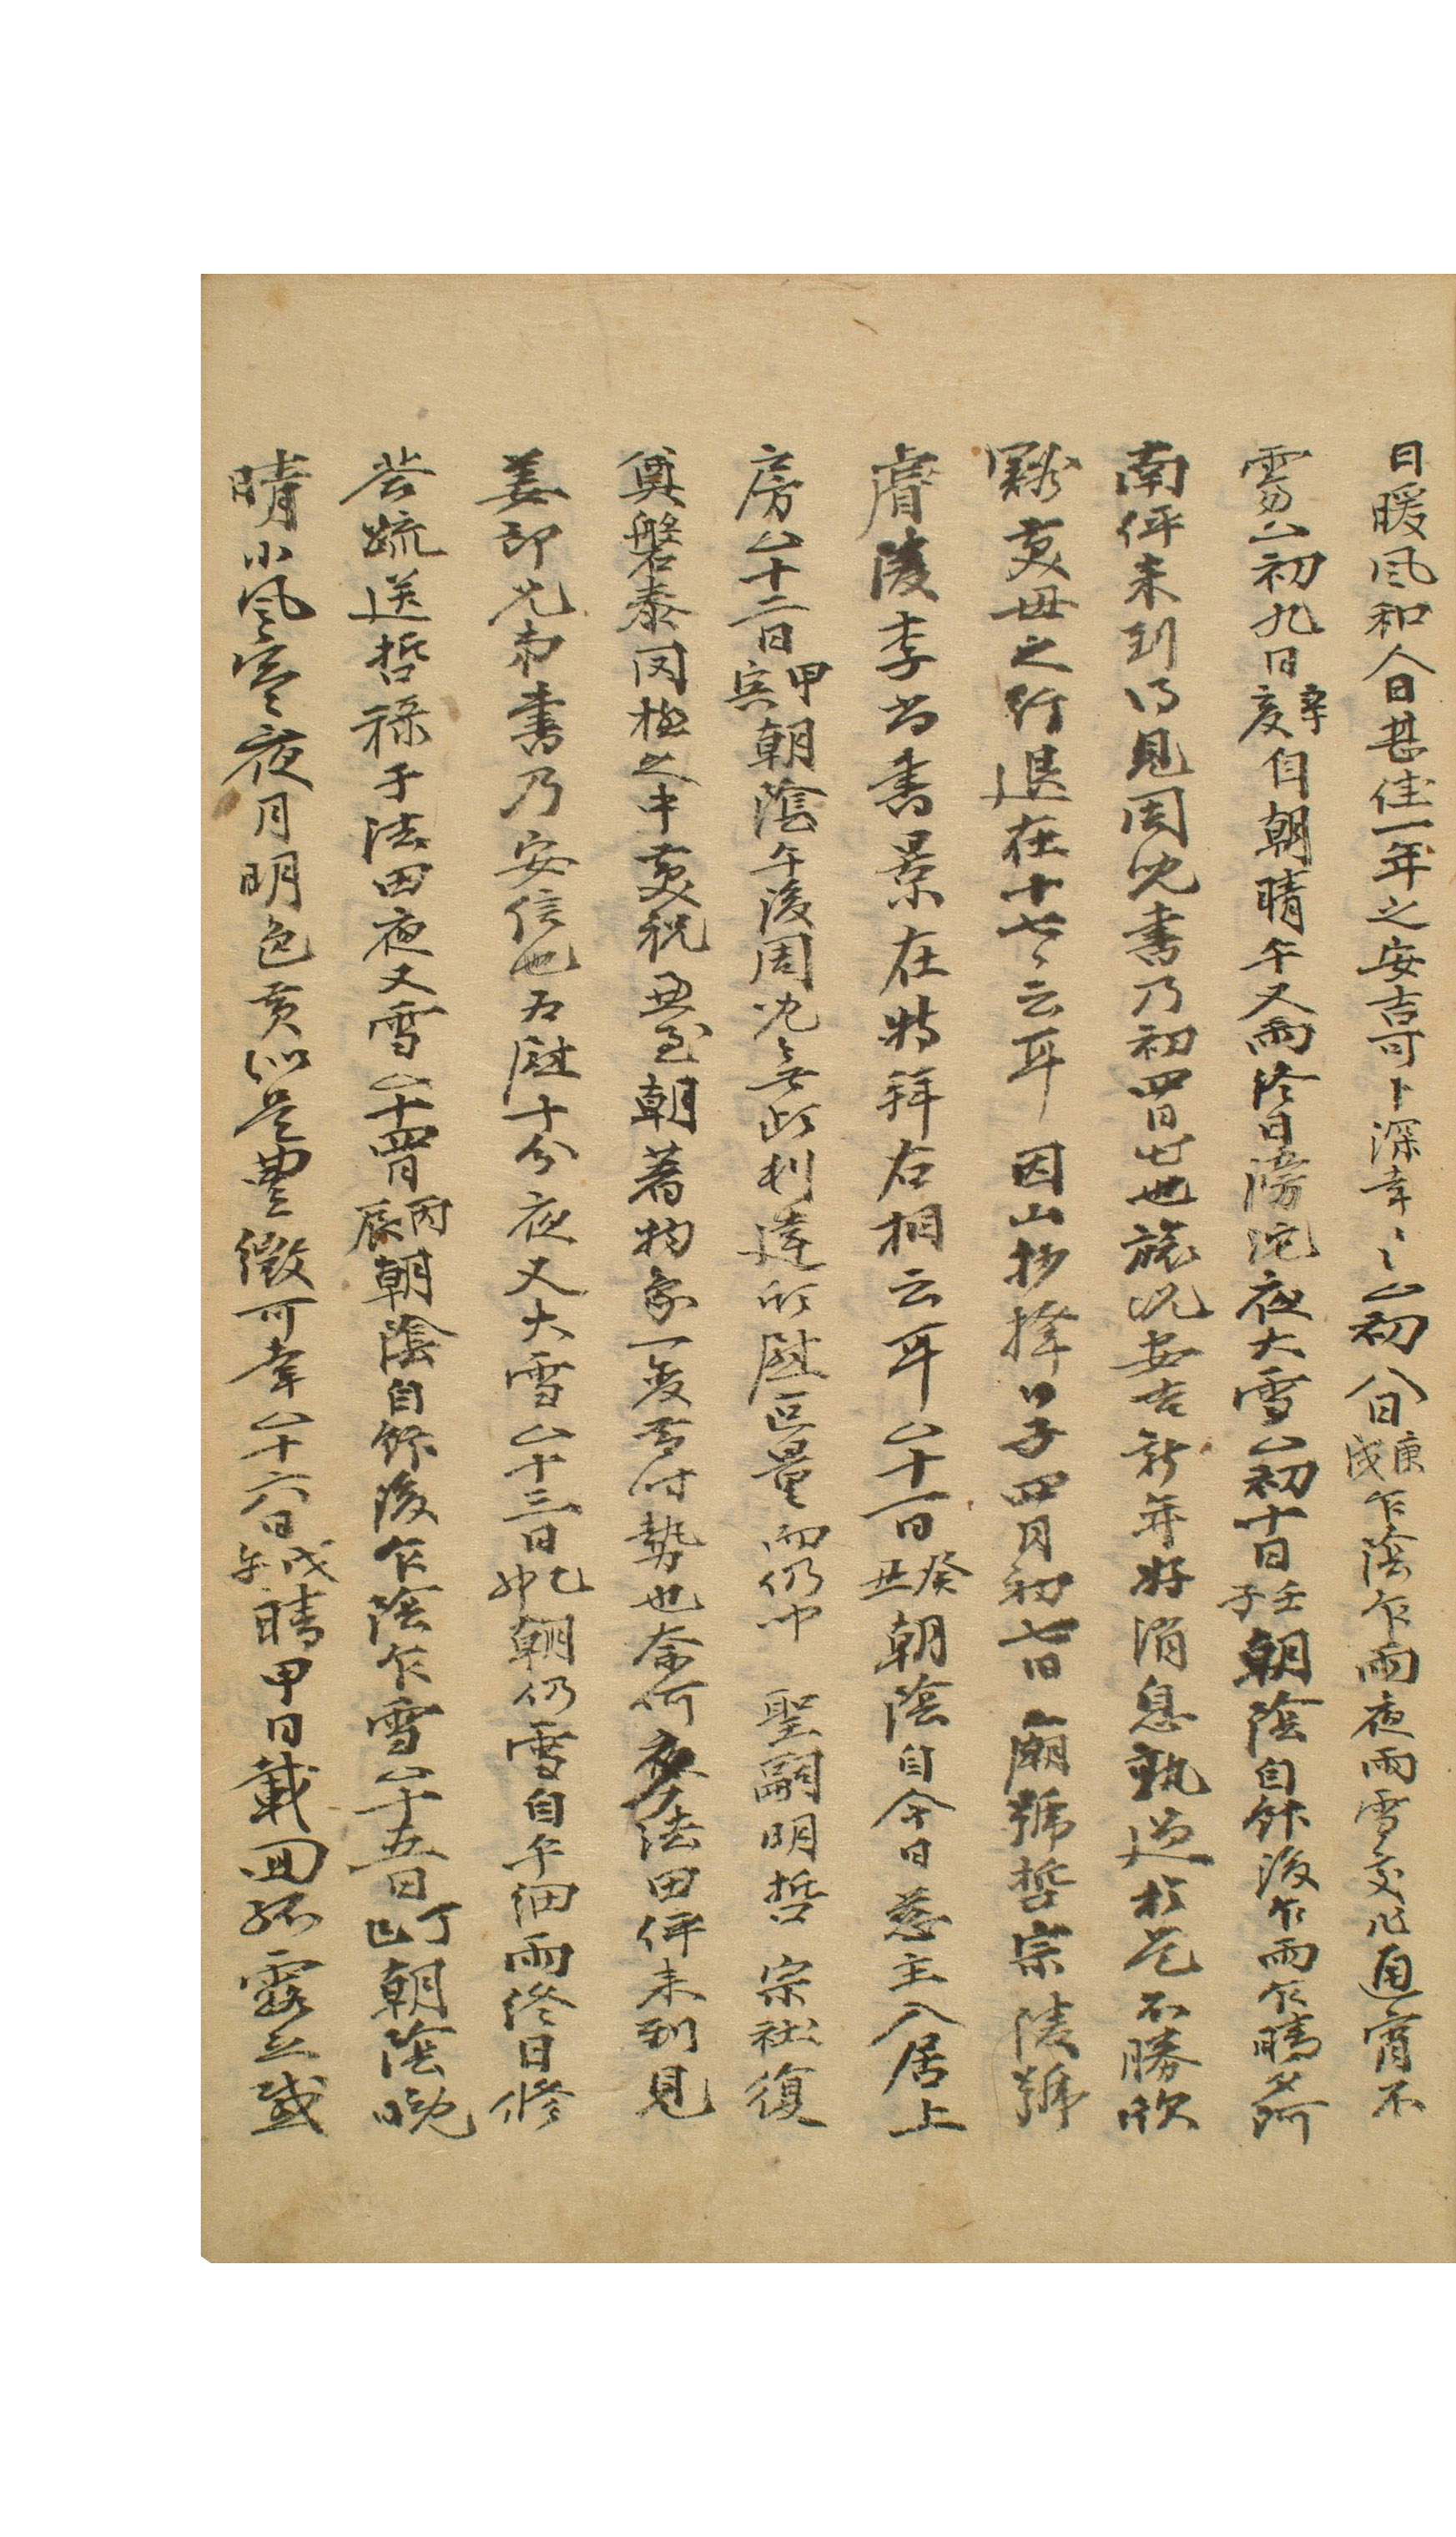 日暖風和人日甚佳一年之安吉可卜深幸〻△初八日庚戌乍陰乍雨夜雨雪交下通宵不
霽△初九日辛亥自朝晴午又雨終日滂沱夜大雪△初十日壬子朝陰自飯後乍雨乍晴夕
南伻來到得見周兄書乃初四日出也旅況安吉新年好消息孰過於是不勝欣
豁內母之行退在十七〻云耳 因山抄擇日子四月初七日 廟號哲宗 陵號
睿陵李尙書景在特拜右相云耳△十一日癸丑朝陰自今日慈主入居上
房△十二日甲寅朝陰午後周兄無頉利達欣慰叵量而仍聞 聖嗣明哲 宗社復
奠磐泰罔極之中 朝著物象一變 時勢也奈何夜法田伻來到見
姜郞兄弟書乃安信也 慰十分夜又大雪△十三日乙卯朝仍雪自午細雨終日修
答疏送哲祿于法田夜又雪△十四日丙辰朝陰自飯後乍陰乍雪△十五日丁巳朝陰晚
晴小風寒夜月明色黃似是豊徵可幸△十六日戊午晴甲日載回